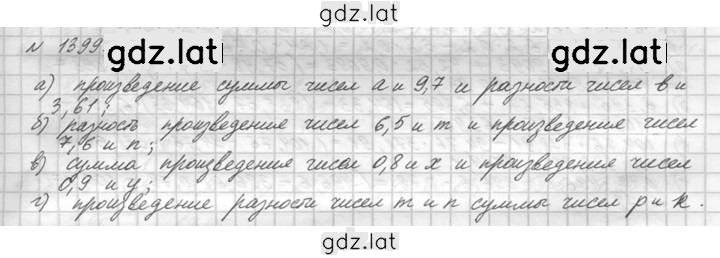 gdz.lat
№ 1399.
gdz.lat
gdz.lat
а) произведение суммы чисел а и 9,7 и разности чисел в и
3,61;
б) разность произведения чисел 6,5 и m и произведение чисел
7,6 и n;
в) сумма произведения чисел 0,8 и х и произведения чисел
0,9 и у;
г) произведение разности чисел m и n суммы чисел p и k.
gdz.lat